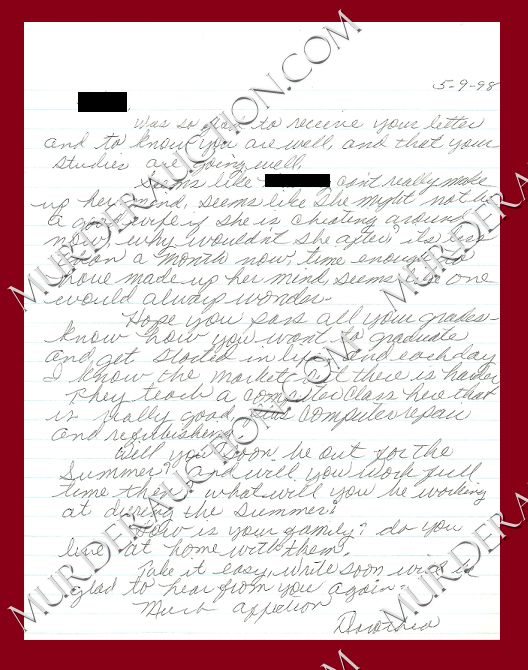 5-9-98
Was so glad to receive your letter
and to know you are well, and that your
studies are going well.
Seems like can't really make
up her mind, seems like she might not be
a good wife if she is cheating around
now, why wouldn't she after? its been
than a month now, time enough to
have made up her mind, seems like one
would always wonder-
Hope you pass all your grades-
know how you want to graduate
and get started in life and each day
I know the market out there is harder
They teach a computer class here that
is really good, plus computer repair
and refurbishing
Will you soon be out for the
Summer? and will you work full
time then? what will you be working
at during the summer?
How is your family? do you
live at home with them.
Take it easy, write soon will be
glad to hear from you again-
Much affection
Dorothea
MURDERAUCTION.COM
MURDERAUCTION.COM
MURDERAUCTION.COM
MURDERAUCTION.COM